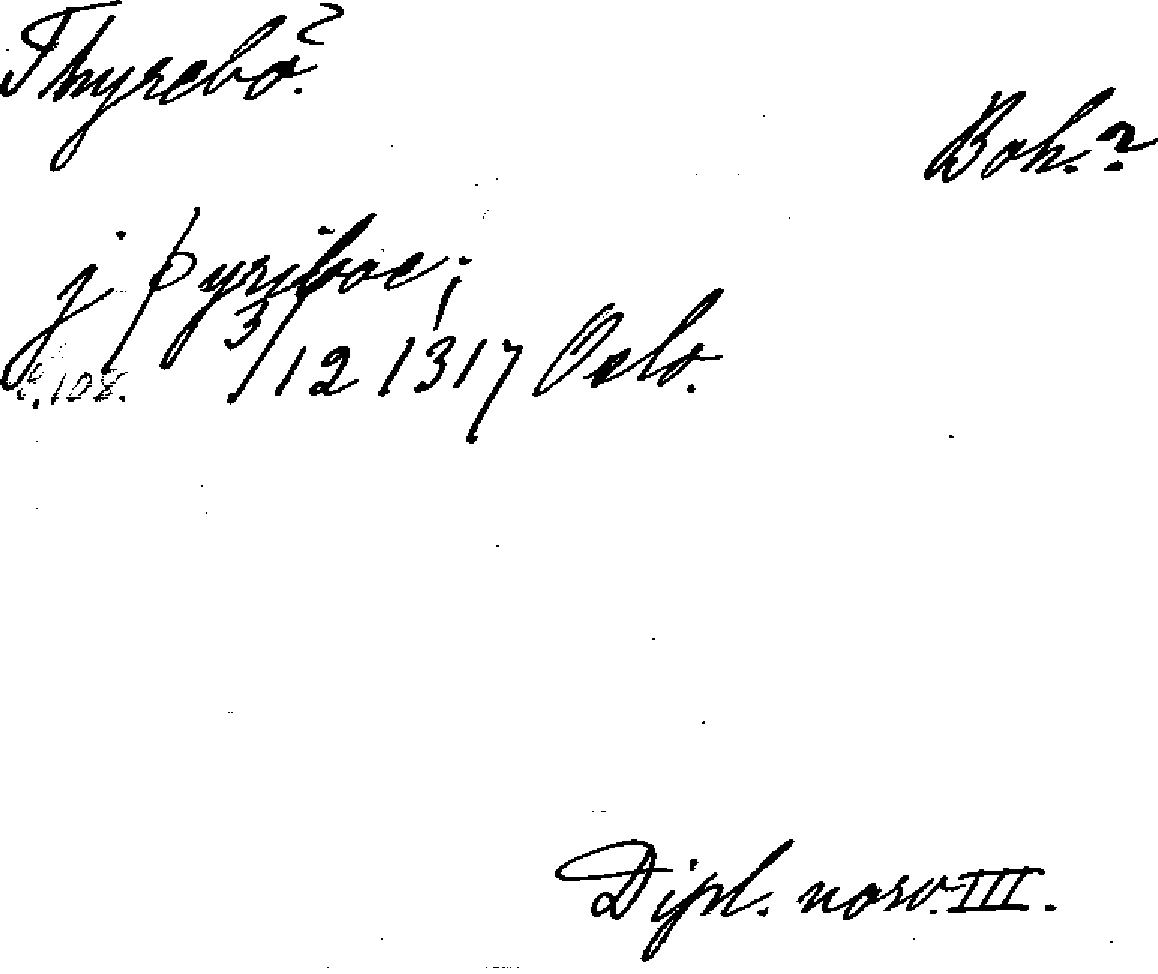 Thyrebo?
Boh.?
j þyriboe;
3/12 1317 Oslo.
s. 108.
Dipl. norv. III.